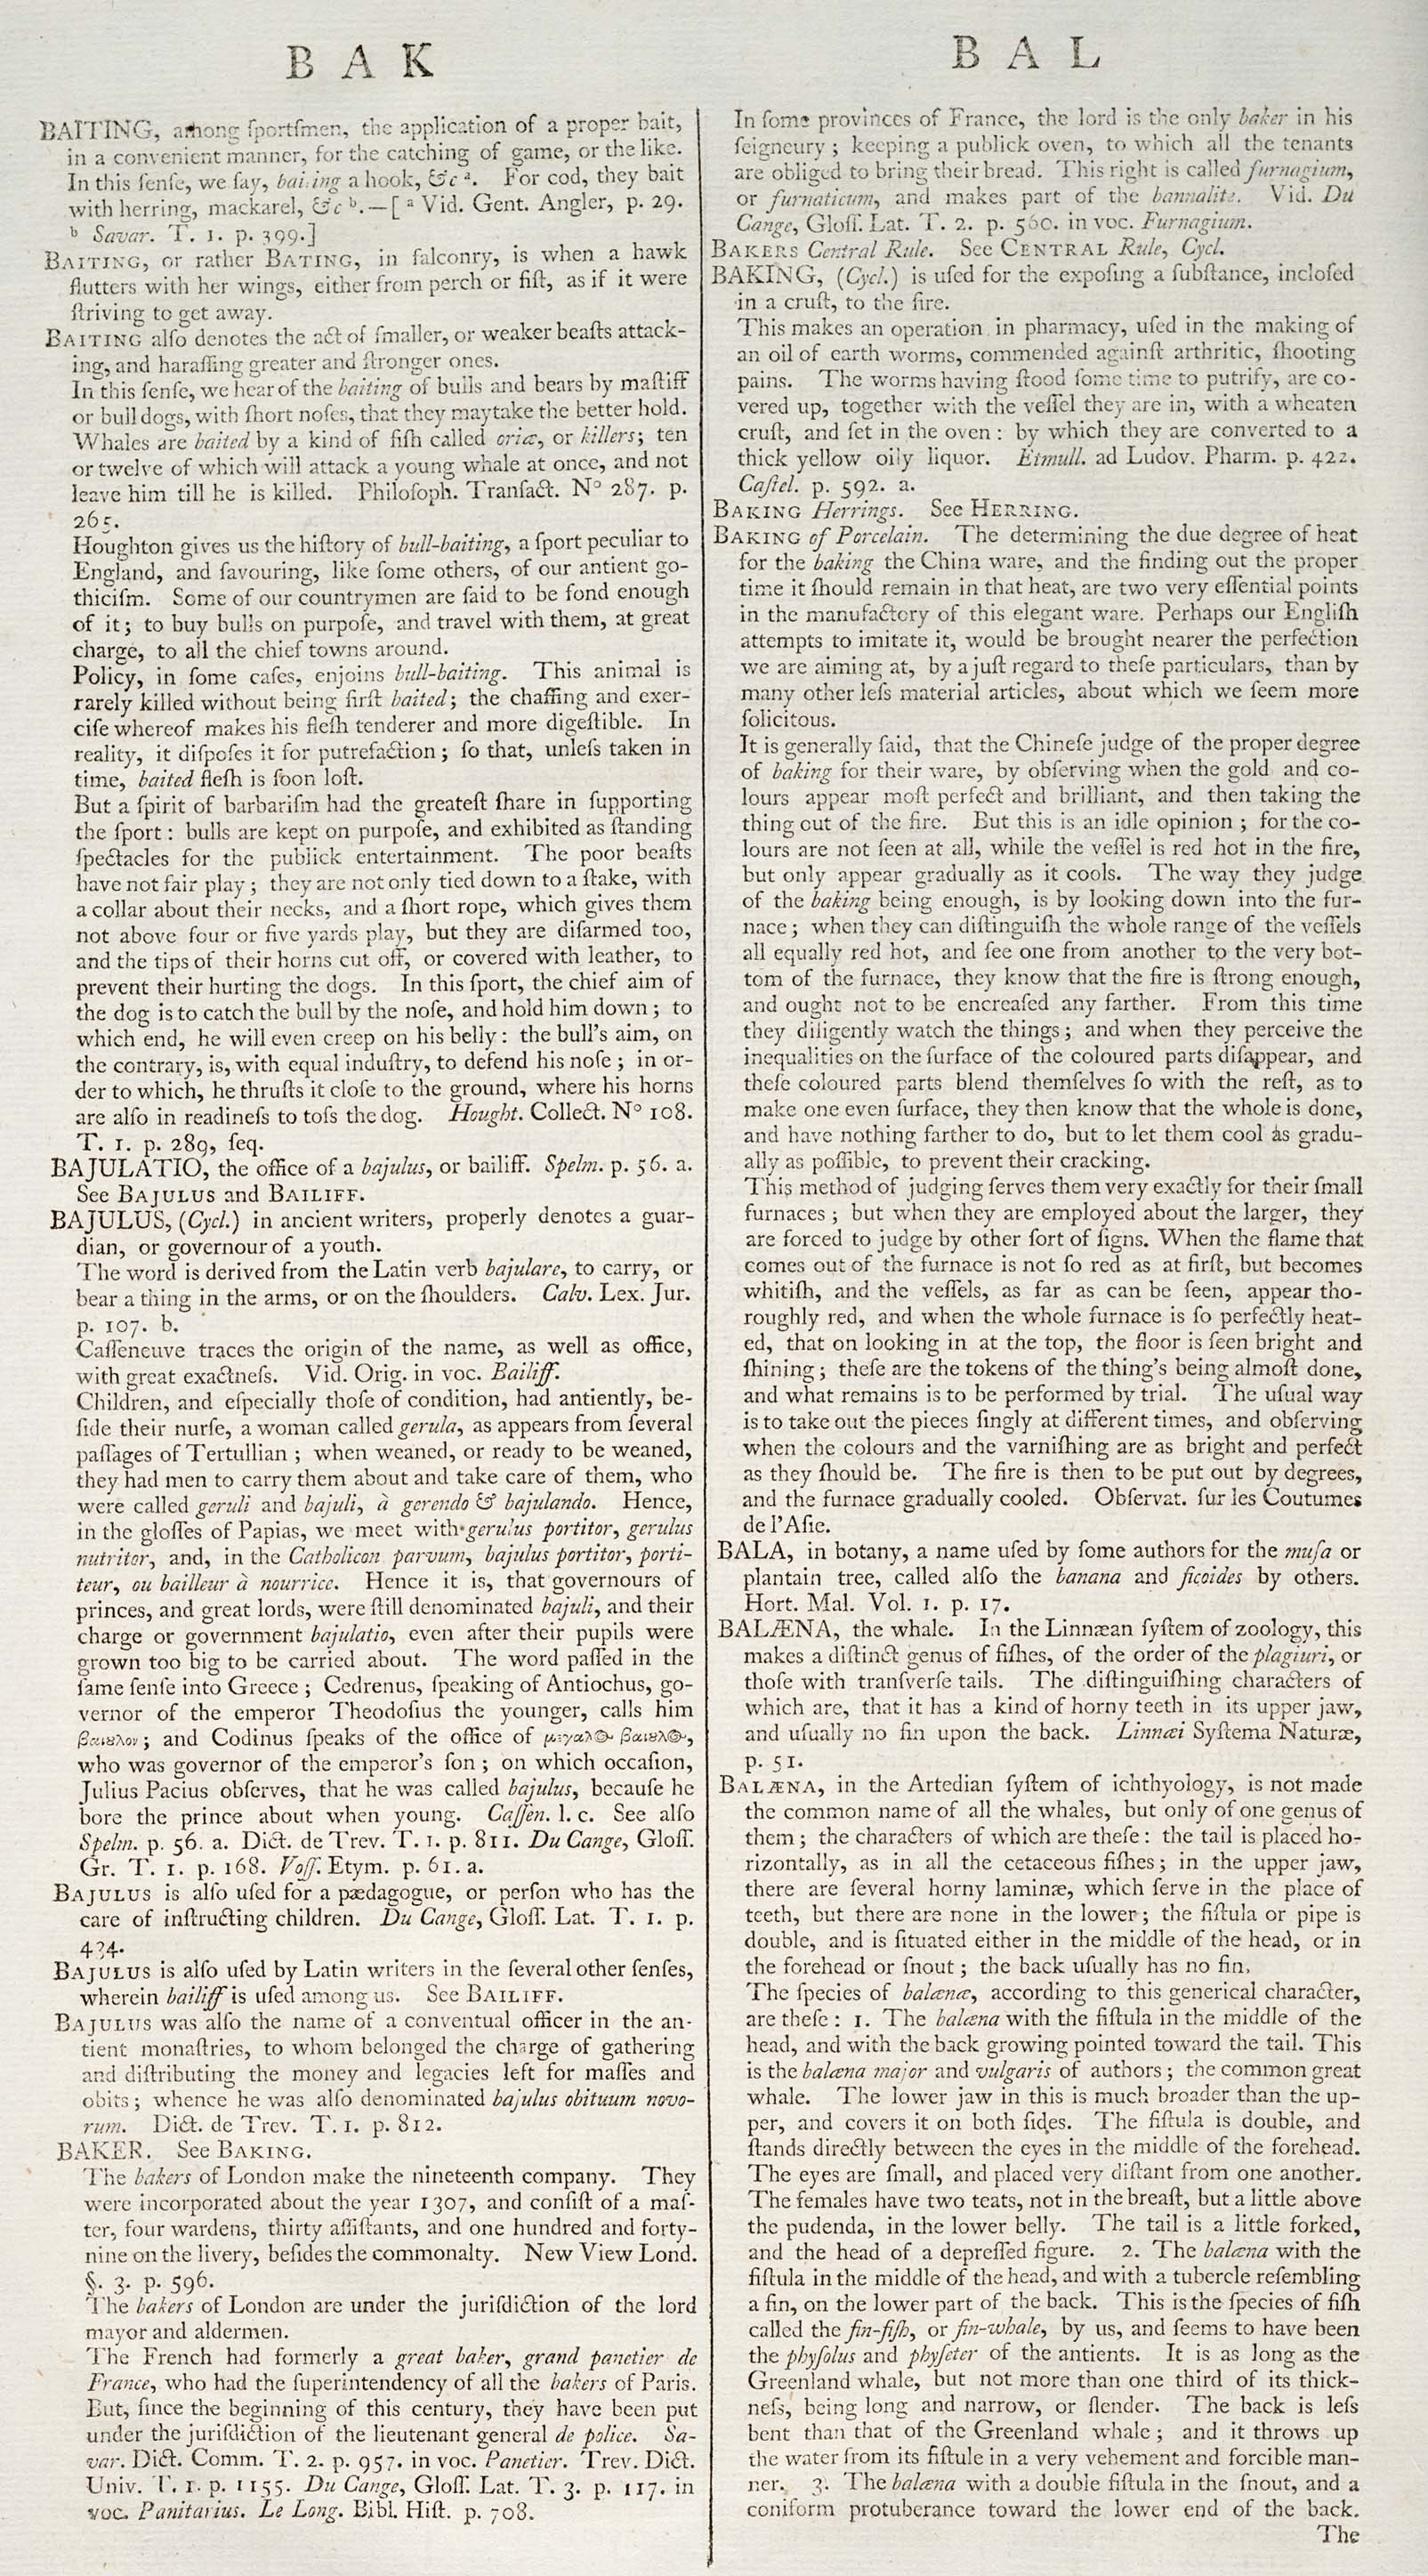 B A K
BAITING, among ſportſmen, the application of a proper bait,
in a convenient manner, for the catching of game, or the like.
In this ſenſe, we ſay, baiting a hook, &c ᵃ. For cod, they bait
with herring, mackarel, &c ᵇ. — [ ᵃ Vid. Gent. Angler, p. 29.
ᵇ Savar. T. 1. p. 399.]
BAITING, or rather BATING, in falconry, is when a hawk
flutters with her wings, either from perch or fiſt, as if it were
ſtriving to get away.
BAITING alſo denotes the act of ſmaller, or weaker beaſts attack-
ing, and haraſſing greater and ſtronger ones.
In this ſenſe, we hear of the baiting of bulls and bears by maſtiff
or bull dogs, with ſhort noſes, that they may take the better hold.
Whales are baited by a kind of fiſh called oriæ, or killers; ten
or twelve of which will attack a young whale at once, and not
leave him till he is killed. Philoſoph. Tranſact. Nº 287. p.
265.
Houghton gives us the hiſtory of bull-baiting, a ſport peculiar to
England, and ſavouring, like ſome others, of our antient go-
thiciſm. Some of our countrymen are ſaid to be fond enough
of it; to buy bulls on purpoſe, and travel with them, at great
charge, to all the chief towns around.
Policy, in ſome caſes, enjoins bull-baiting. This animal is
rarely killed without being firſt baited; the chaffing and exer-
ciſe whereof makes his fleſh tenderer and more digeſtible. In
reality, it diſpoſes it for putrefaction; ſo that, unleſs taken in
time, baited fleſh is ſoon loſt.
But a ſpirit of barbariſm had the greateſt ſhare in ſupporting
the ſport: bulls are kept on purpoſe, and exhibited as ſtanding
ſpectacles for the publick entertainment. The poor beaſts
have not fair play; they are not only tied down to a ſtake, with
a collar about their necks, and a ſhort rope, which gives them
not above four or five yards play, but they are diſarmed too,
and the tips of their horns cut off, or covered with leather, to
prevent their hurting the dogs. In this ſport, the chief aim of
the dog is to catch the bull by the noſe, and hold him down; to
which end, he will even creep on his belly: the bull's aim, on
the contrary, is, with equal induſtry, to defend his noſe; in or-
der to which, he thruſts it cloſe to the ground, where his horns
are alſo in readineſs to toſs the dog. Hought. Collect. Nº 108.
T. 1. p. 289, ſeq.
BAJULATIO, the office of a bajulus, or bailiff. Spelm. p. 56. a.
See BAJULUS and BAILIFF.
BAJULUS, (Cycl.) in ancient writers, properly denotes a guar-
dian, or governour of a youth.
The word is derived from the Latin verb bajulare, to carry, or
bear a thing in the arms, or on the ſhoulders. Calv. Lex. Jur.
p. 107. b.
Caſſeneuve traces the origin of the name, as well as office,
with great exactneſs. Vid. Orig. in voc. Bailiff.
Children, and eſpecially thoſe of condition, had antiently, be-
ſide their nurſe, a woman called gerula, as appears from ſeveral
paſſages of Tertullian; when weaned, or ready to be weaned,
they had men to carry them about and take care of them, who
were called geruli and bajuli, à gerendo & bajulando. Hence,
in the gloſſes of Papias, we meet with gerulus portitor, gerulus
nutritor, and, in the Catholicon parvum, bajulus portitor, porti-
teur, ou bailleur à nourrice. Hence it is, that governours of
princes, and great lords, were ſtill denominated bajuli, and their
charge or government bajulatio, even after their pupils were
grown too big to be carried about. The word paſſed in the
ſame ſenſe into Greece; Cedrenus, ſpeaking of Antiochus, go-
vernor of the emperor Theodoſius the younger, calls him
βαιȣλον; and Codinus ſpeaks of the office of μεγαλος βαιȣλος,
who was governor of the emperor's ſon; on which occaſion,
Julius Pacius obſerves, that he was called bajulus, becauſe he
bore the prince about when young. Caſſen. l. c. See alſo
Spelm. p. 56. a. Dict. de Trev. T. 1. p. 811. Du Cange, Gloſſ.
Gr. T. 1. p. 168. Voſſ. Etym. p. 61. a.
BAJULUS is alſo uſed for a pædagogue, or perſon who has the
care of inſtructing children. Du Cange, Gloſſ. Lat. T. 1. p.
434.
BAJULUS is alſo uſed by Latin writers in the ſeveral other ſenſes,
wherein bailiff is uſed among us. See BAILIFF.
BAJULUS was alſo the name of a conventual officer in the an-
tient monaſtries, to whom belonged the charge of gathering
and diſtributing the money and legacies left for maſſes and
obits; whence he was alſo denominated bajulus obituum novo-
rum. Dict. de Trev. T. 1. p. 812.
BAKER. See BAKING.
The bakers of London make the nineteenth company. They
were incorporated about the year 1307, and conſiſt of a maſ-
ter, four wardens, thirty aſſiſtants, and one hundred and forty-
nine on the livery, beſides the commonalty. New View Lond.
§. 3. p. 596.
The bakers of London are under the juriſdiction of the lord
mayor and aldermen.
The French had formerly a great baker, grand panetier de
France, who had the ſuperintendency of all the bakers of Paris.
But, ſince the beginning of this century, they have been put
under the juriſdiction of the lieutenant general de police. Sa-
var. Dict. Comm. T. 2. p. 957. in voc. Panetier. Trev. Dict.
Univ. T. 1. p. 1155. Du Cange, Gloſſ. Lat. T. 3. p. 117. in
voc. Panitarius. Le Long. Bibl. Hiſt. p. 708.
B A L
In ſome provinces of France, the lord is the only baker in his
ſeigneury; keeping a publick oven, to which all the tenants
are obliged to bring their bread. This right is called furnagium,
or furnaticum, and makes part of the bannalite. Vid. Du
Cange, Gloſſ. Lat. T. 2. p. 560. in voc. Furnagium.
BAKERS Central Rule. See CENTRAL Rule, Cycl.
BAKING, (Cycl.) is uſed for the expoſing a ſubſtance, incloſed
in a cruſt, to the fire.
This makes an operation in pharmacy, uſed in the making of
an oil of earth worms, commended againſt arthritic, ſhooting
pains. The worms having ſtood ſome time to putrify, are co-
vered up, together with the veſſel they are in, with a wheaten
cruſt, and ſet in the oven: by which they are converted to a
thick yellow oily liquor. Etmull. ad Ludov. Pharm. p. 422.
Caſtel. p. 592. a.
BAKING Herrings. See HERRING.
BAKING of Porcelain. The determining the due degree of heat
for the baking the China ware, and the finding out the proper
time it ſhould remain in that heat, are two very eſſential points
in the manufactory of this elegant ware. Perhaps our Engliſh
attempts to imitate it, would be brought nearer the perfection
we are aiming at, by a juſt regard to theſe particulars, than by
many other leſs material articles, about which we ſeem more
ſolicitous.
It is generally ſaid, that the Chineſe judge of the proper degree
of baking for their ware, by obſerving when the gold and co-
lours appear moſt perfect and brilliant, and then taking the
thing out of the fire. But this is an idle opinion; for the co-
lours are not ſeen at all, while the veſſel is red hot in the fire,
but only appear gradually as it cools. The way they judge
of the baking being enough, is by looking down into the fur-
nace; when they can diſtinguiſh the whole range of the veſſels
all equally red hot, and ſee one from another to the very bot-
tom of the furnace, they know that the fire is ſtrong enough,
and ought not to be encreaſed any farther. From this time
they diligently watch the things; and when they perceive the
inequalities on the ſurface of the coloured parts diſappear, and
theſe coloured parts blend themſelves ſo with the reſt, as to
make one even ſurface, they then know that the whole is done,
and have nothing farther to do, but to let them cool as gradu-
ally as poſſible, to prevent their cracking.
This method of judging ſerves them very exactly for their ſmall
furnaces; but when they are employed about the larger, they
are forced to judge by other ſort of ſigns. When the flame that
comes out of the furnace is not ſo red as at firſt, but becomes
whitiſh, and the veſſels, as far as can be ſeen, appear tho-
roughly red, and when the whole furnace is ſo perfectly heat-
ed, that on looking in at the top, the floor is ſeen bright and
ſhining; theſe are the tokens of the thing's being almoſt done,
and what remains is to be performed by trial. The uſual way
is to take out the pieces ſingly at different times, and obſerving
when the colours and the varniſhing are as bright and perfect
as they ſhould be. The fire is then to be put out by degrees,
and the furnace gradually cooled. Obſervat. ſur les Coutumes
de l'Aſie.
BALA, in botany, a name uſed by ſome authors for the muſa or
plantain tree, called alſo the banana and ficoides by others.
Hort. Mal. Vol. 1. p. 17.
BALÆNA, the whale. In the Linnæan ſyſtem of zoology, this
makes a diſtinct genus of fiſhes, of the order of the plagiuri, or
thoſe with tranſverſe tails. The diſtinguiſhing characters of
which are, that it has a kind of horny teeth in its upper jaw,
and uſually no fin upon the back. Linnæi Syſtema Naturæ,
p. 51.
BALÆNA, in the Artedian ſyſtem of ichthyology, is not made
the common name of all the whales, but only of one genus of
them; the characters of which are theſe: the tail is placed ho-
rizontally, as in all the cetaceous fiſhes; in the upper jaw,
there are ſeveral horny laminæ, which ſerve in the place of
teeth, but there are none in the lower; the fiſtula or pipe is
double, and is ſituated either in the middle of the head, or in
the forehead or ſnout; the back uſually has no fin.
The ſpecies of balænæ, according to this generical character,
are theſe: 1. The balæna with the fiſtula in the middle of the
head, and with the back growing pointed toward the tail. This
is the balæna major and vulgaris of authors; the common great
whale. The lower jaw in this is much broader than the up-
per, and covers it on both ſides. The fiſtula is double, and
ſtands directly between the eyes in the middle of the forehead.
The eyes are ſmall, and placed very diſtant from one another.
The females have two teats, not in the breaſt, but a little above
the pudenda, in the lower belly. The tail is a little forked,
and the head of a depreſſed figure. 2. The balæna with the
fiſtula in the middle of the head, and with a tubercle reſembling
a fin, on the lower part of the back. This is the ſpecies of fiſh
called the fin-fiſh, or fin-whale, by us, and ſeems to have been
the phyſolus and phyſeter of the antients. It is as long as the
Greenland whale, but not more than one third of its thick-
neſs, being long and narrow, or ſlender. The back is leſs
bent than that of the Greenland whale; and it throws up
the water from its fiſtule in a very vehement and forcible man-
ner. 3. The balæna with a double fiſtula in the ſnout, and a
coniform protuberance toward the lower end of the back.
The